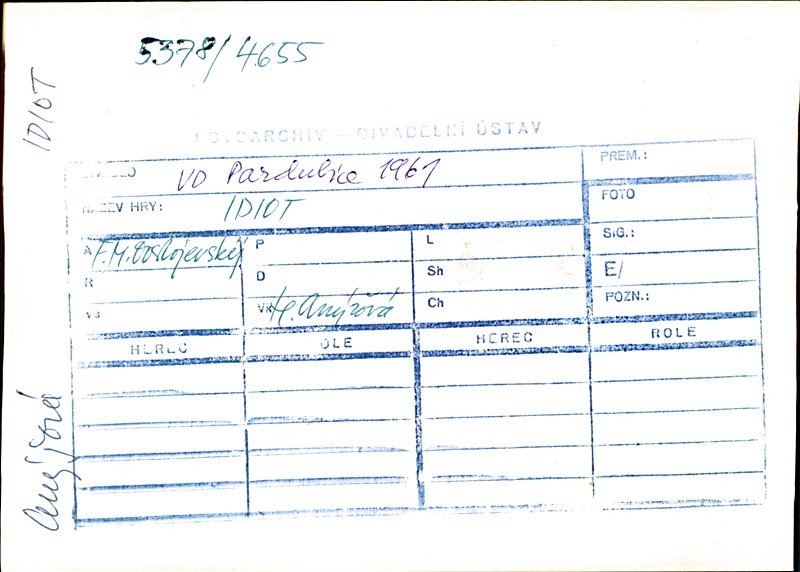 5378/4655
IDIOT
FOTOARCHIV – DIVADELNÍ ÚSTAV
VD Pardubice 1961
PREM.:
NÁZEV HRY: IDIOT
FOTO
A F.M. Dostojevský P L SIG.:
R D Sh E/
VS VK H. Anýžová Ch POZN.:
HEREC ROLE HEREC ROLE
Anýžová